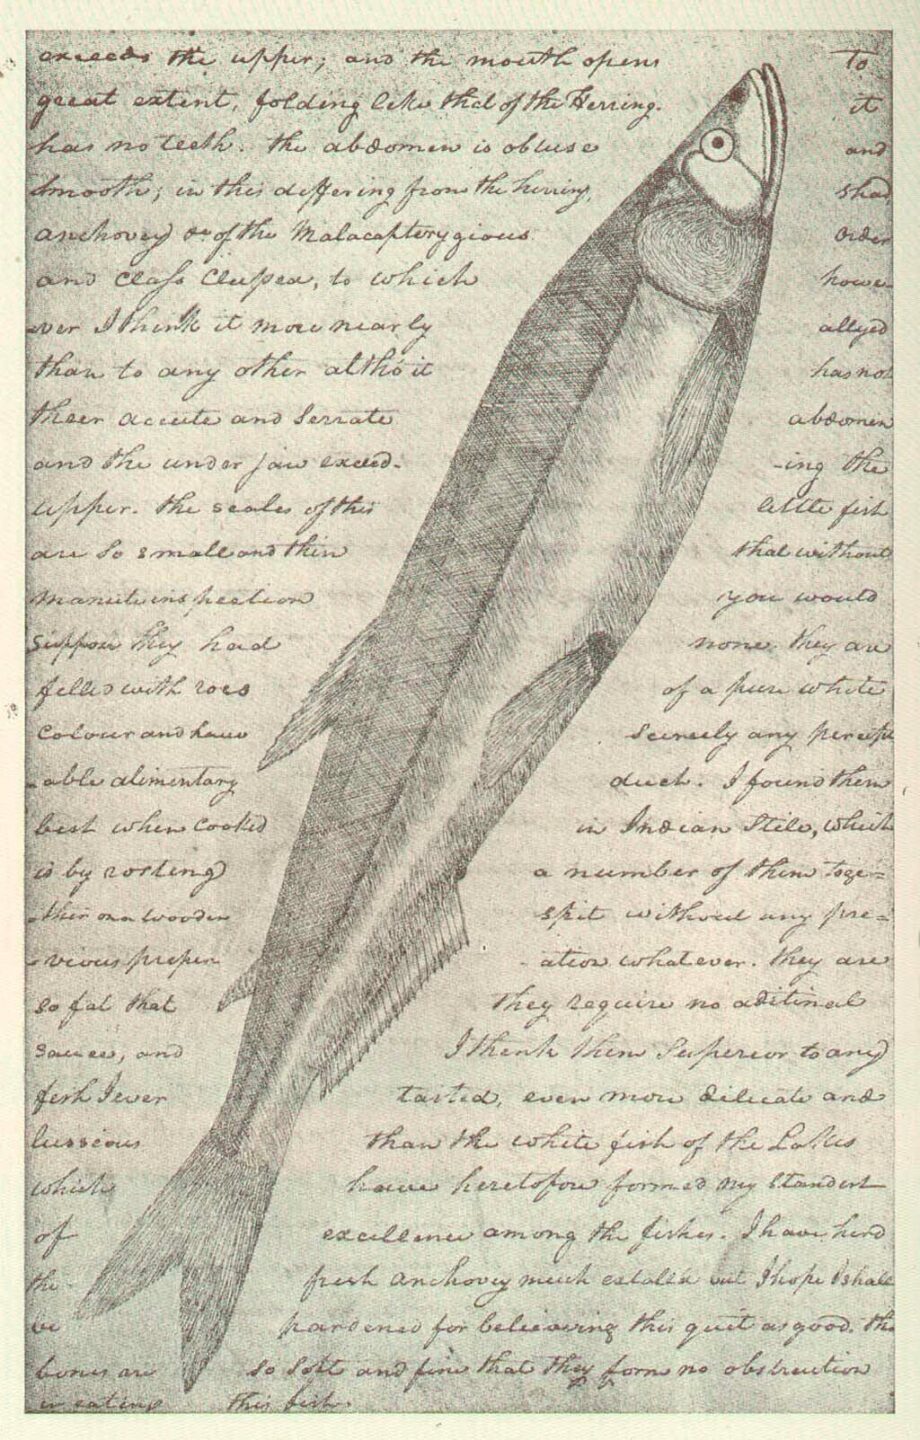 exceeds the upper; and the mouth opens to
great extent, folding like that of the Herring. it
has no teeth. the abdomen is obtuse and
smooth; in this differing from the herring, shad
anchovey &c of the Malacapterygious Order
and Class Clupea, to which howe-
ver I think it more nearly allyed
than to any other altho' it has not
their accute and serrate abdomen
and the under jaw exceed- -ing the
upper. the scales of this little fish
are so small and thin that without
manute inspection you would
suppose they had none. they are
filled with roes of a pure white
colour and have scercely any percept
-able alimentary duct. I found them
best when cooked in Indian Stile, which
is by rosting a number of them toge=
-ther on a wooden spit without any pre=
-vious prepar -ation whatever. they are
so fat that they require no aditional
sauce, and I think them superior to any
fish I ever tasted, even more dilicate and
lussious than the white fish of the Lakes
which have heretofore formed my standart
of excellence among the fishes. I have herd
the fresh anchovey much extolled but I hope I shall
be pardoned for believing this quit as good. the
bones are so soft and fine that they form no obstruction
in eating this fish.